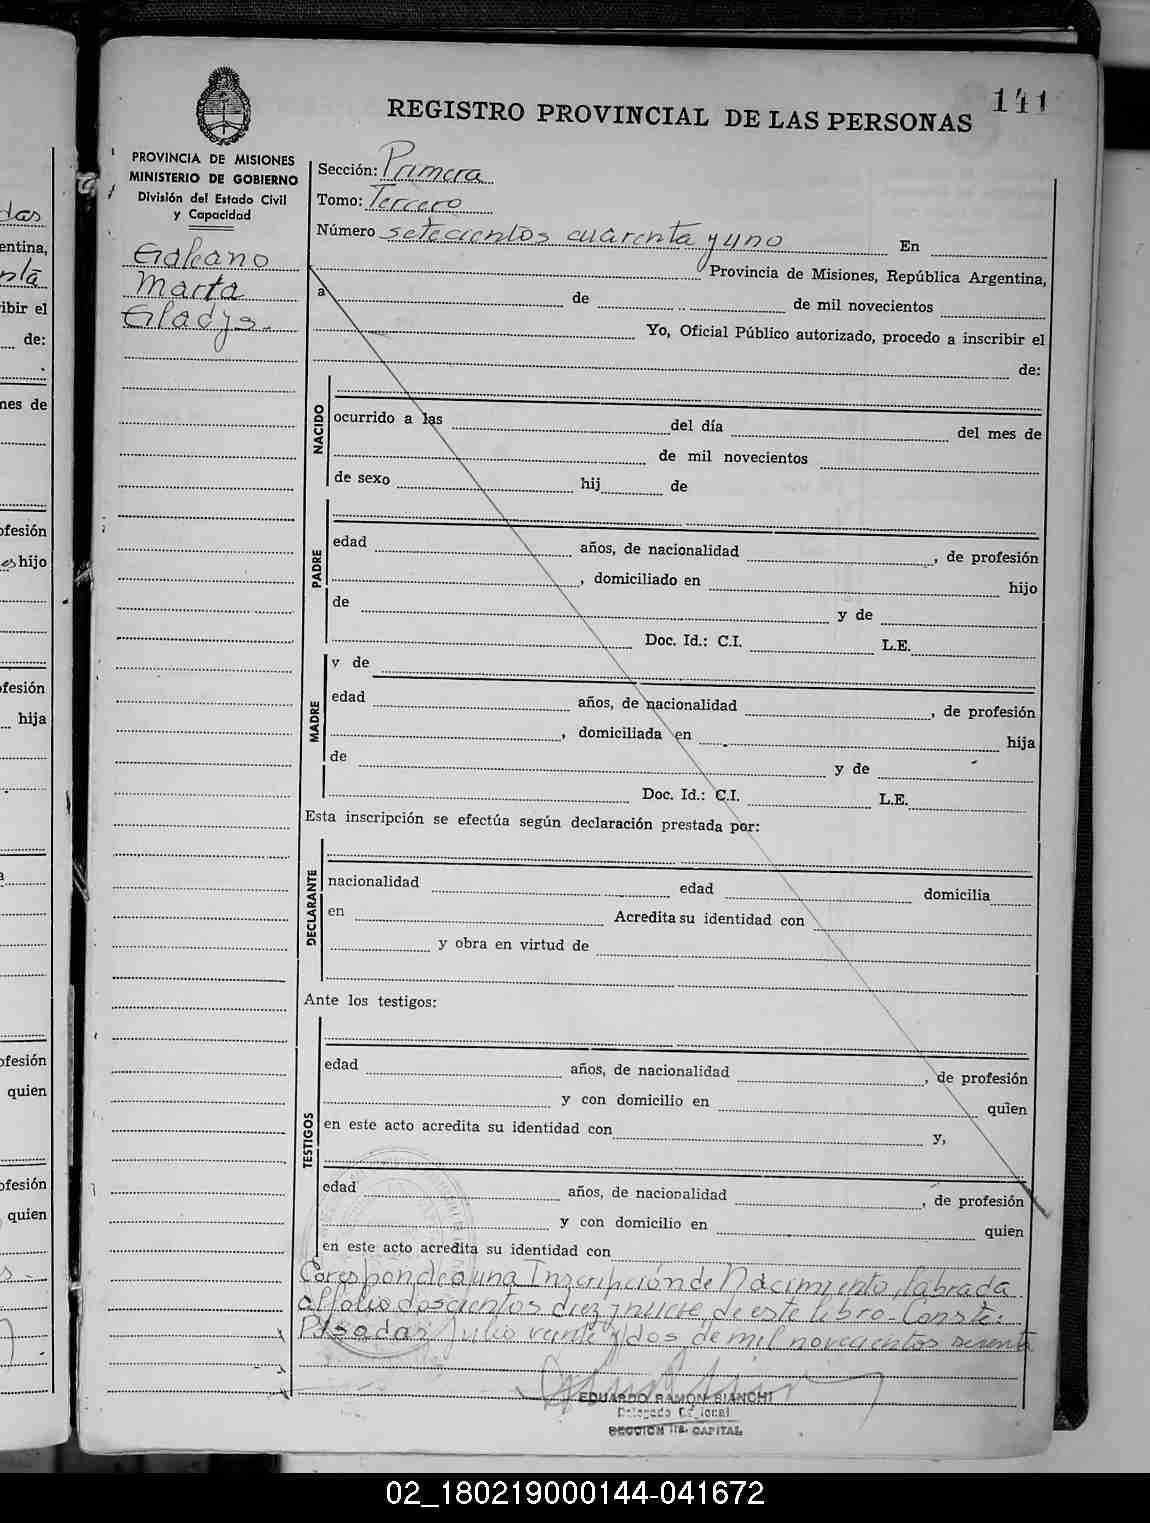 141
REGISTRO PROVINCIAL DE LAS PERSONAS
PROVINCIA DE MISIONES
MINISTERIO DE GOBIERNO
División del Estado Civil
y Capacidad
Galeano
Marta
Gladys.
Sección: Primera
Tomo: Tercero
Número setecientos cuarenta y uno En
Provincia de Misiones, República Argentina,
a de de mil novecientos
Yo, Oficial Público autorizado, procedo a inscribir el
de:
NACIDO
ocurrido a las del día del mes de
de mil novecientos
de sexo hij de
PADRE
edad años, de nacionalidad , de profesión
, domiciliado en hijo
de y de
Doc. Id.: C.I. L.E.
MADRE
y de
edad años, de nacionalidad , de profesión
, domiciliada en hija
de y de
Doc. Id.: C.I. L.E.
Esta inscripción se efectúa según declaración prestada por:
DECLARANTE
nacionalidad edad domicilia
en Acredita su identidad con
y obra en virtud de
Ante los testigos:
TESTIGOS
edad años, de nacionalidad , de profesión
y con domicilio en quien
en este acto acredita su identidad con y,
edad años, de nacionalidad , de profesión
y con domicilio en quien
en este acto acredita su identidad con
Corresponde a una Inscripción de Nacimiento, labrada
al folio doscientos diez y nueve de este libro.- Conste:
Posadas, Julio veinte y dos de mil novecientos
EDUARDO RAMON BIANCHI
SECCION 1ra. CAPITAL
das
entina,
ibir el
de:
mes de
ofesión
hijo
ofesión
hija
ofesión
quien
ofesión
quien
02_180219000144-041672